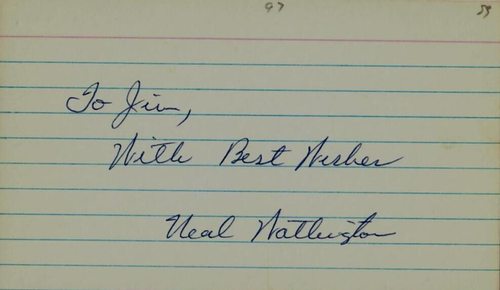 97
To Jim,
With Best Wishes
Neal Watlington